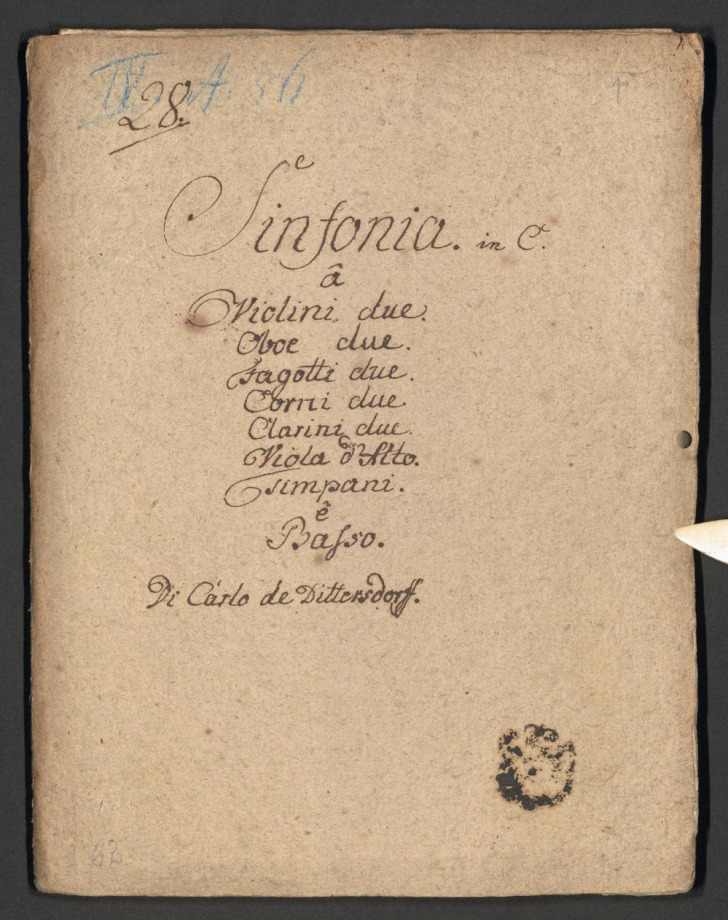 IV A 56
28.
Sinfonia. in C.
â
Violini due.
Oboe due.
Fagotti due.
Corni due
Clarini due.
Viola d'Alto.
Timpani.
ê
Basso.
Di Carlo de Dittersdorf.
62